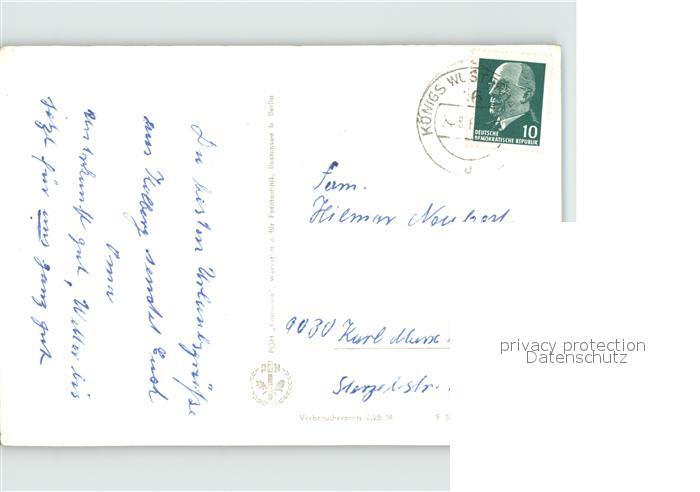 Die besten Urlaubsgrüße
aus Kolberg sendet Euch
Oma
Unterkunft gut, Wetter bis
jetzt für uns ganz gut
Fam.
Hilmar Neubert
9030 Karl Marx
KÖNIGS WUST
DEUTSCHE
DEMOKRATISCHE REPUBLIK
10
Werkstätte für Fototechnik, Bestensee b. Berlin
PGH
Verbraucherpreis 0,25 M
privacy protection
Datenschutz